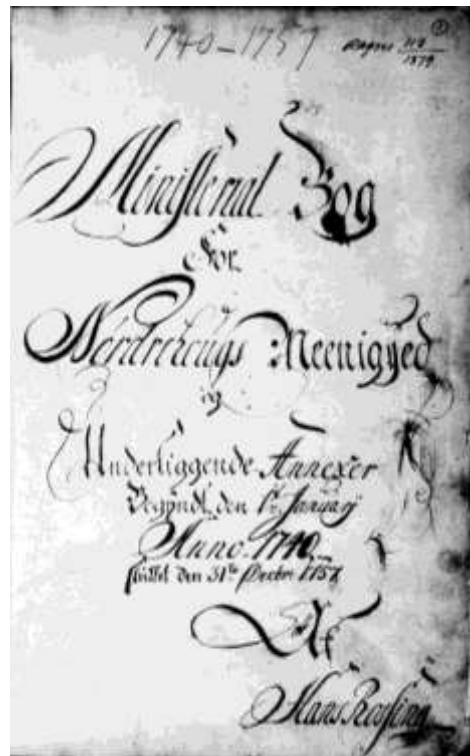 1740-1757
Ministerial Bog
For
Nordrehougs Meenighed
og
Underliggende Annexer
Begyndt den 1. January
Anno 1740
sluttet den 31te Decbr 1757
Af
Hans